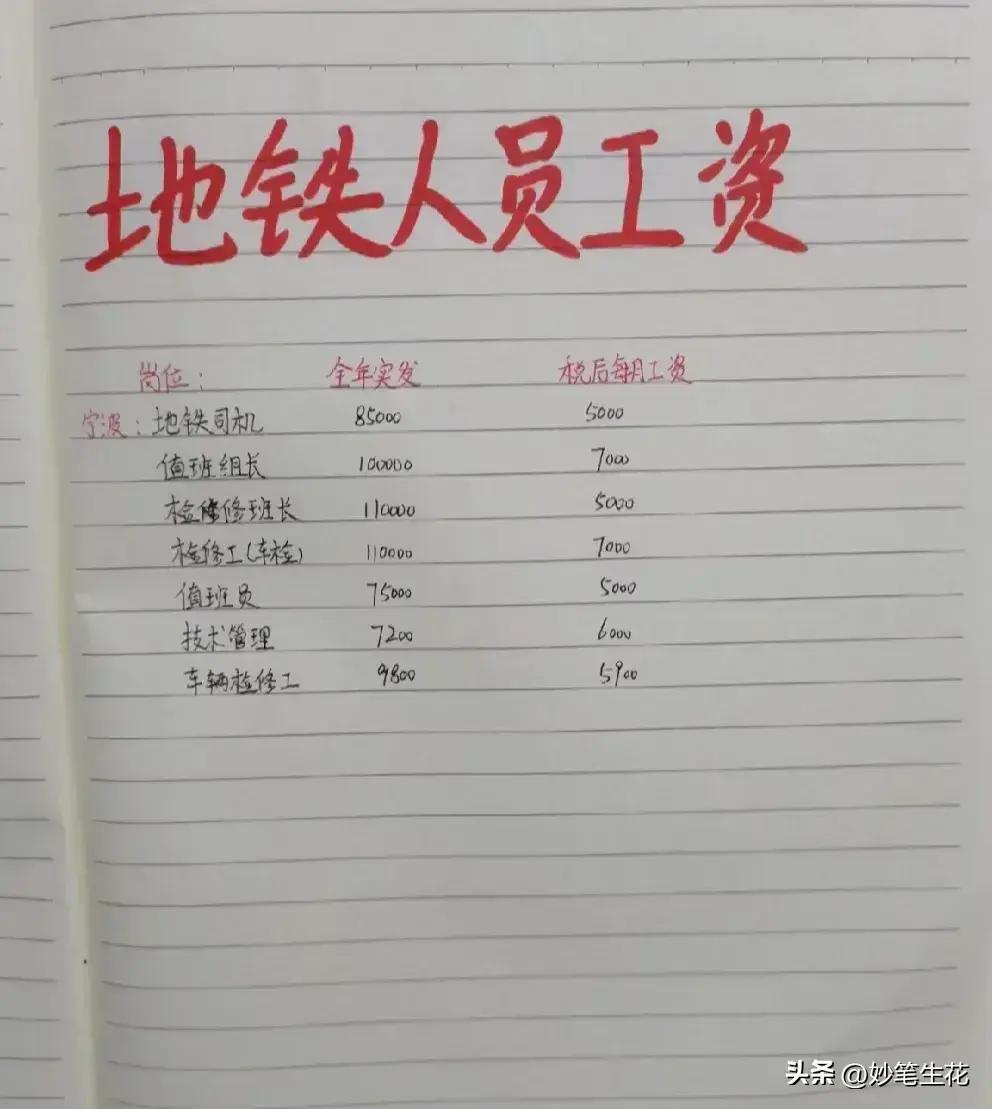 地铁人员工资
岗位： 全年实发 税后每月工资
宁波：地铁司机 85000 5000
值班组长 100000 7000
检修班长 110000 5000
检修工(车检) 110000 7000
值班员 75000 5000
技术管理 7200 6000
车辆检修工 9800 5900
头条 @妙笔生花